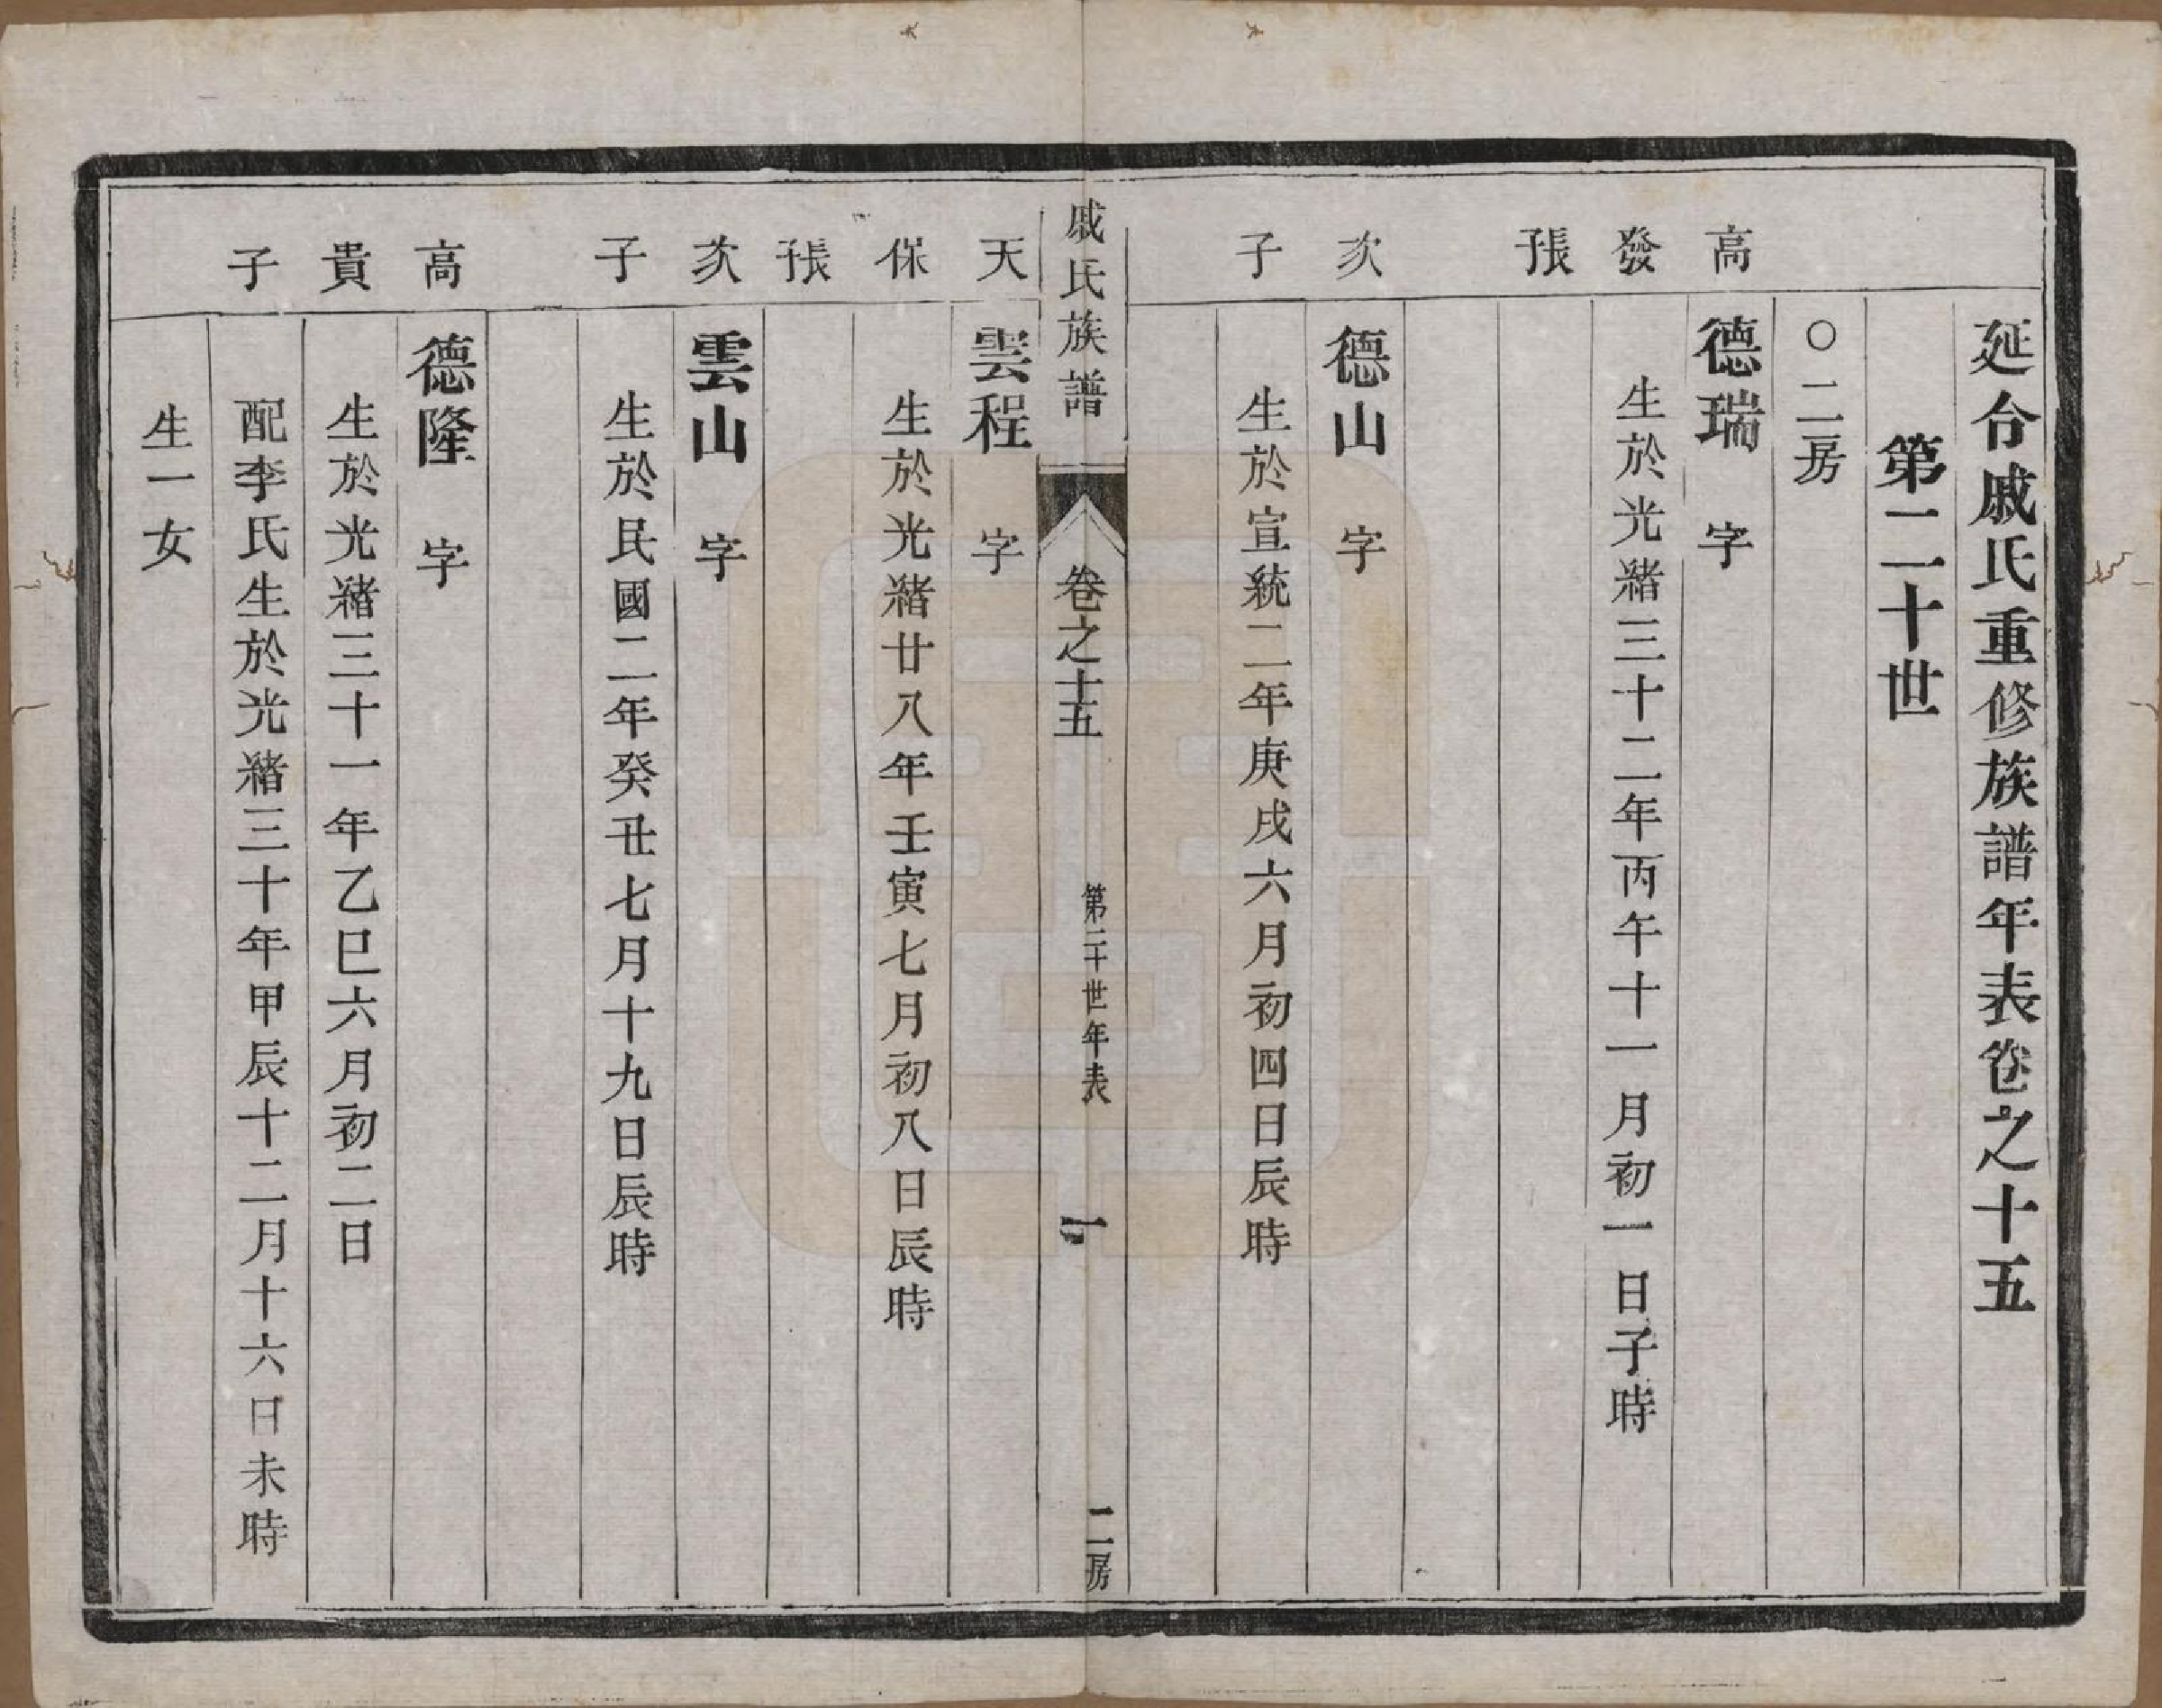 延合戚氏重修族譜年表卷之十五
第二十世
〇二房
高發長子
德瑞 字
生於光緒三十二年丙午十一月初一日子時
次子
德山 字
生於宣統二年庚戌六月初四日辰時
戚氏族譜 卷之十五 第二十世年表 一 二房
天保長子
雲程 字
生於光緒廿八年壬寅七月初八日辰時
次子
雲山 字
生於民國二年癸丑七月十九日辰時
高貴子
德隆 字
生於光緒三十一年乙巳六月初二日
配李氏生於光緒三十年甲辰十二月十六日未時
生一女